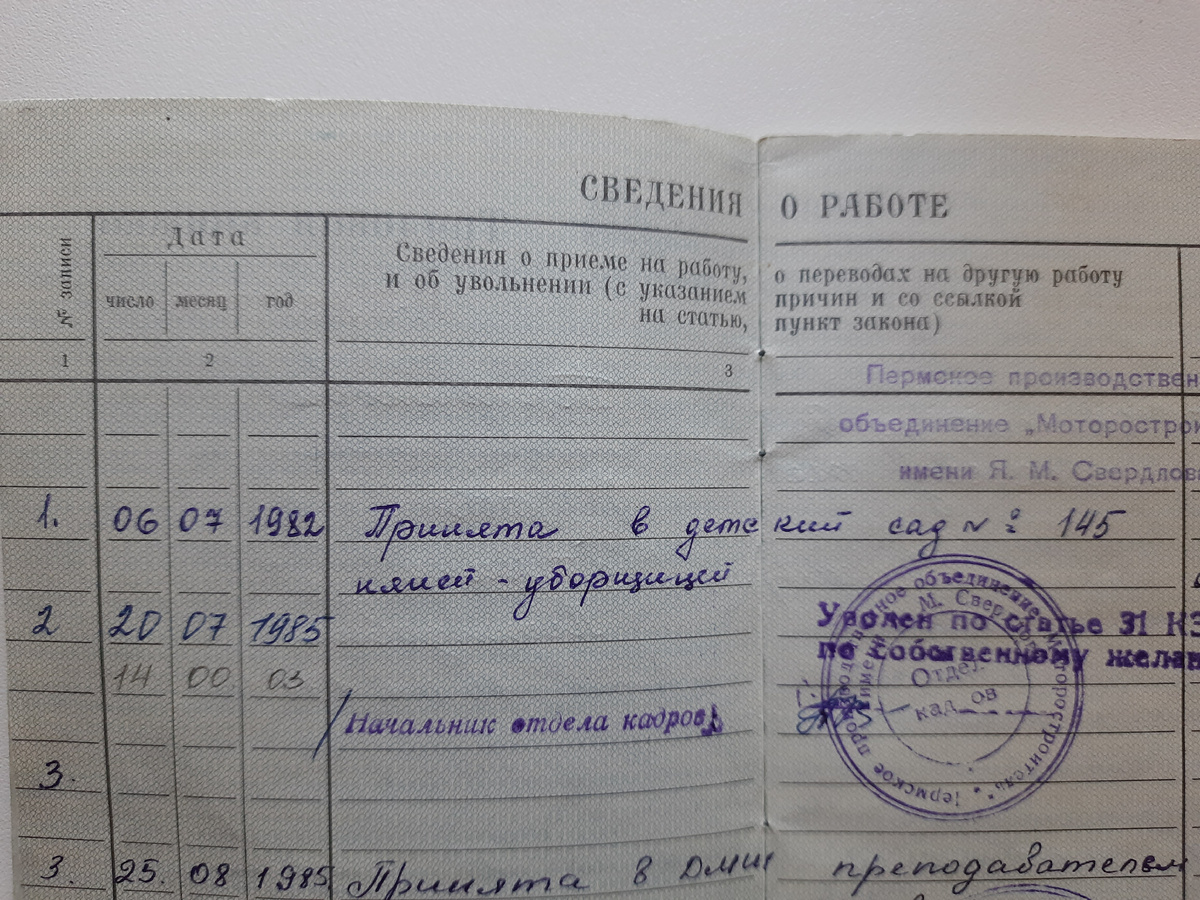 СВЕДЕНИЯ О РАБОТЕ
№ записи
Дата
число месяц год
Сведения о приеме на работу, о переводах на другую работу
и об увольнении (с указанием причин и со ссылкой
на статью, пункт закона)
1 2 3
Пермское производствен
объединение „Моторострои
имени Я. М. Свердлов
1. 06 07 1982 Принята в детский сад № 145
няней - уборщицей
2 20 07 1985 Уволен по статье 31 КЗ
по собственному желан
14 00 03
Начальник отдела кадров
Отдел
кадров
3.
3. 25. 08 1985 Принята в ДМШ преподавателем